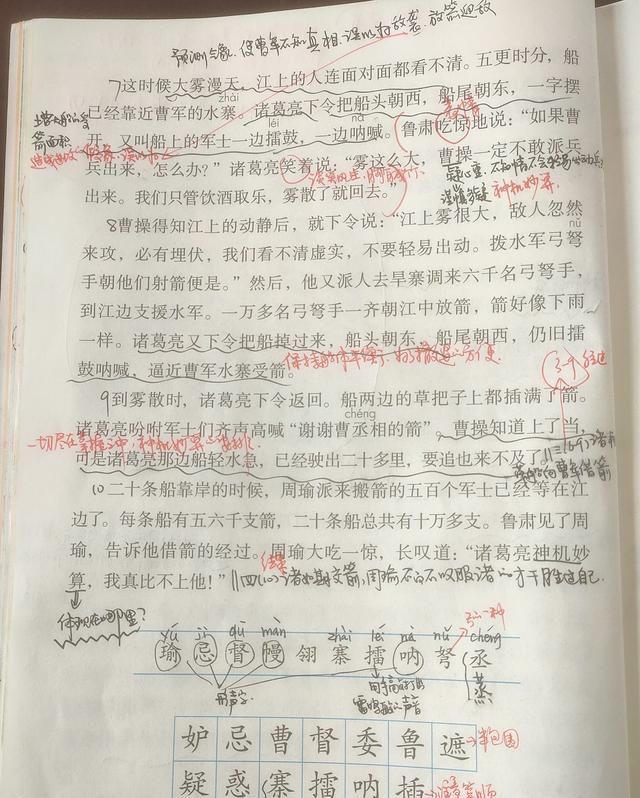 预测气象、使曹军不知真相、误以为敌袭、放箭迎敌
7这时候大雾漫天，江上的人连面对面都看不清。五更时分，船
zhài
已经靠近曹军的水寨。诸葛亮下令把船头朝西，船尾朝东，一字摆
箭面积
léi nà
开，又叫船上的军士一边擂鼓，一边呐喊。鲁肃吃惊地说：“如果曹
兵出来，怎么办？”诸葛亮笑着说：“雾这么大，曹操一定不敢派兵
神机妙算
出来。我们只管饮酒取乐，雾散了就回去。”
8曹操得知江上的动静后，就下令说：“江上雾很大，敌人忽然
nǔ
来攻，必有埋伏，我们看不清虚实，不要轻易出动。拨水军弓弩
手朝他们射箭便是。”然后，他又派人去旱寨调来六千名弓弩手，
到江边支援水军。一万多名弓弩手一齐朝江中放箭，箭好像下雨
一样。诸葛亮又下令把船掉过来，船头朝东，船尾朝西，仍旧擂
鼓呐喊，逼近曹军水寨受箭。
9到雾散时，诸葛亮下令返回。船两边的草把子上都插满了箭。
chéng
诸葛亮吩咐军士们齐声高喊“谢谢曹丞相的箭”。曹操知道上了当，
可是诸葛亮那边船轻水急，已经驶出二十多里，要追也来不及了。
10二十条船靠岸的时候，周瑜派来搬箭的五百个军士已经等在江
边了。每条船有五六千支箭，二十条船总共有十万多支。鲁肃见了周
瑜，告诉他借箭的经过。周瑜大吃一惊，长叹道：“诸葛亮神机妙
结果
算，我真比不上他！”‖四(10)诸如期交箭，周瑜不得不叹服诸的才干胜过自己.
体现在哪里？
yú jì dū màn zhài léi nà nǔ chéng
瑜 忌 督 幔 翎 寨 擂 呐 弩 丞
蒸
形声字
妒 忌 曹 督 委 鲁 遮 半包围
疑 惑 寨 擂 呐 插